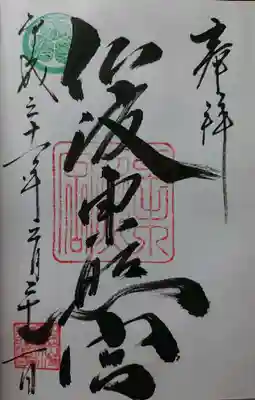 奉拝
仙波東照宮
平成三十一年三月 十一日